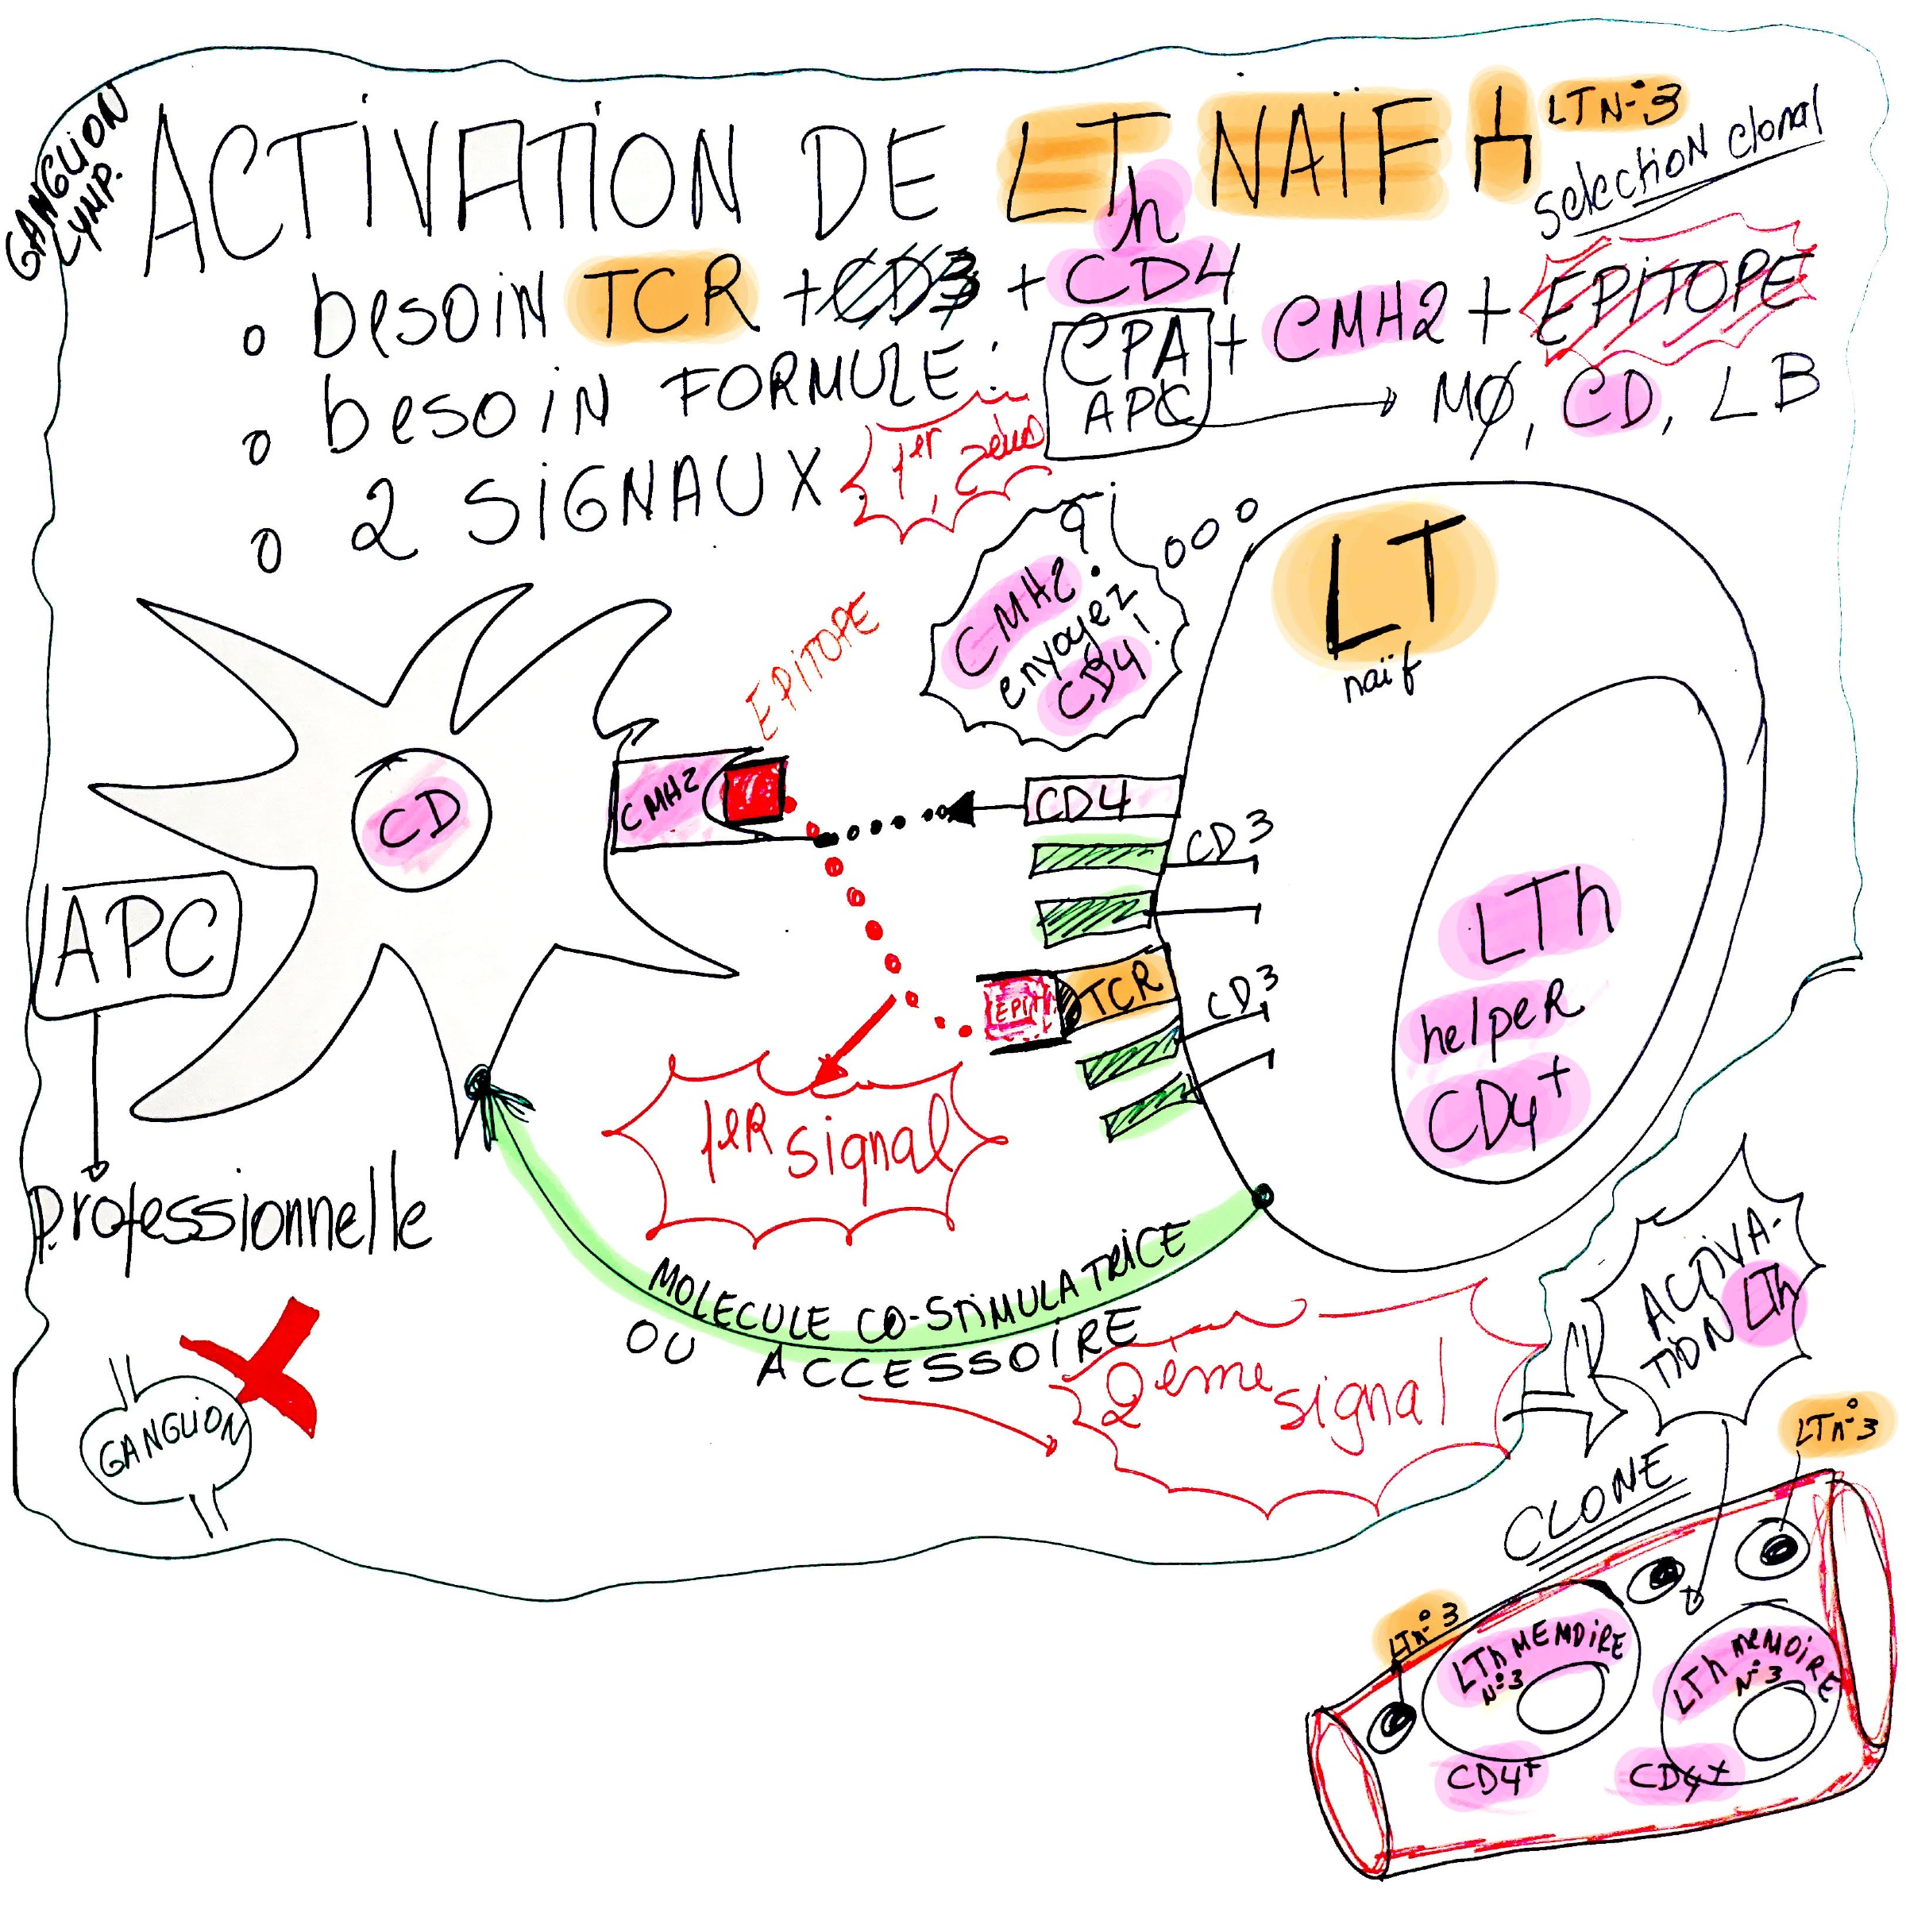 GANGLION
LYMP.
ACTIVATION DE LTh NAÏF
LTN°3
selection clonal
o besoin TCR + CD3 + CD4
o besoin FORMULE : CPA + CMH2 + EPITOPE
APC
MØ, CD, LB
o 2 SIGNAUX
CMH2
envoyez
CD4!
LT
naïf
EPITOPE
CD
CMH2
CD4
CD3
APC
EPIT
TCR
CD3
LTh
helper
CD4+
1er signal
professionnelle
MOLECULE CO-STIMULATRICE
OU ACCESSOIRE
2ème signal
ACTIVA-
TION LTh
GANGLION
CLONE
LTn°3
LTn°3
LTh MEMOIRE
N°3
CD4+
LTh MEMOIRE
N°3
CD4+